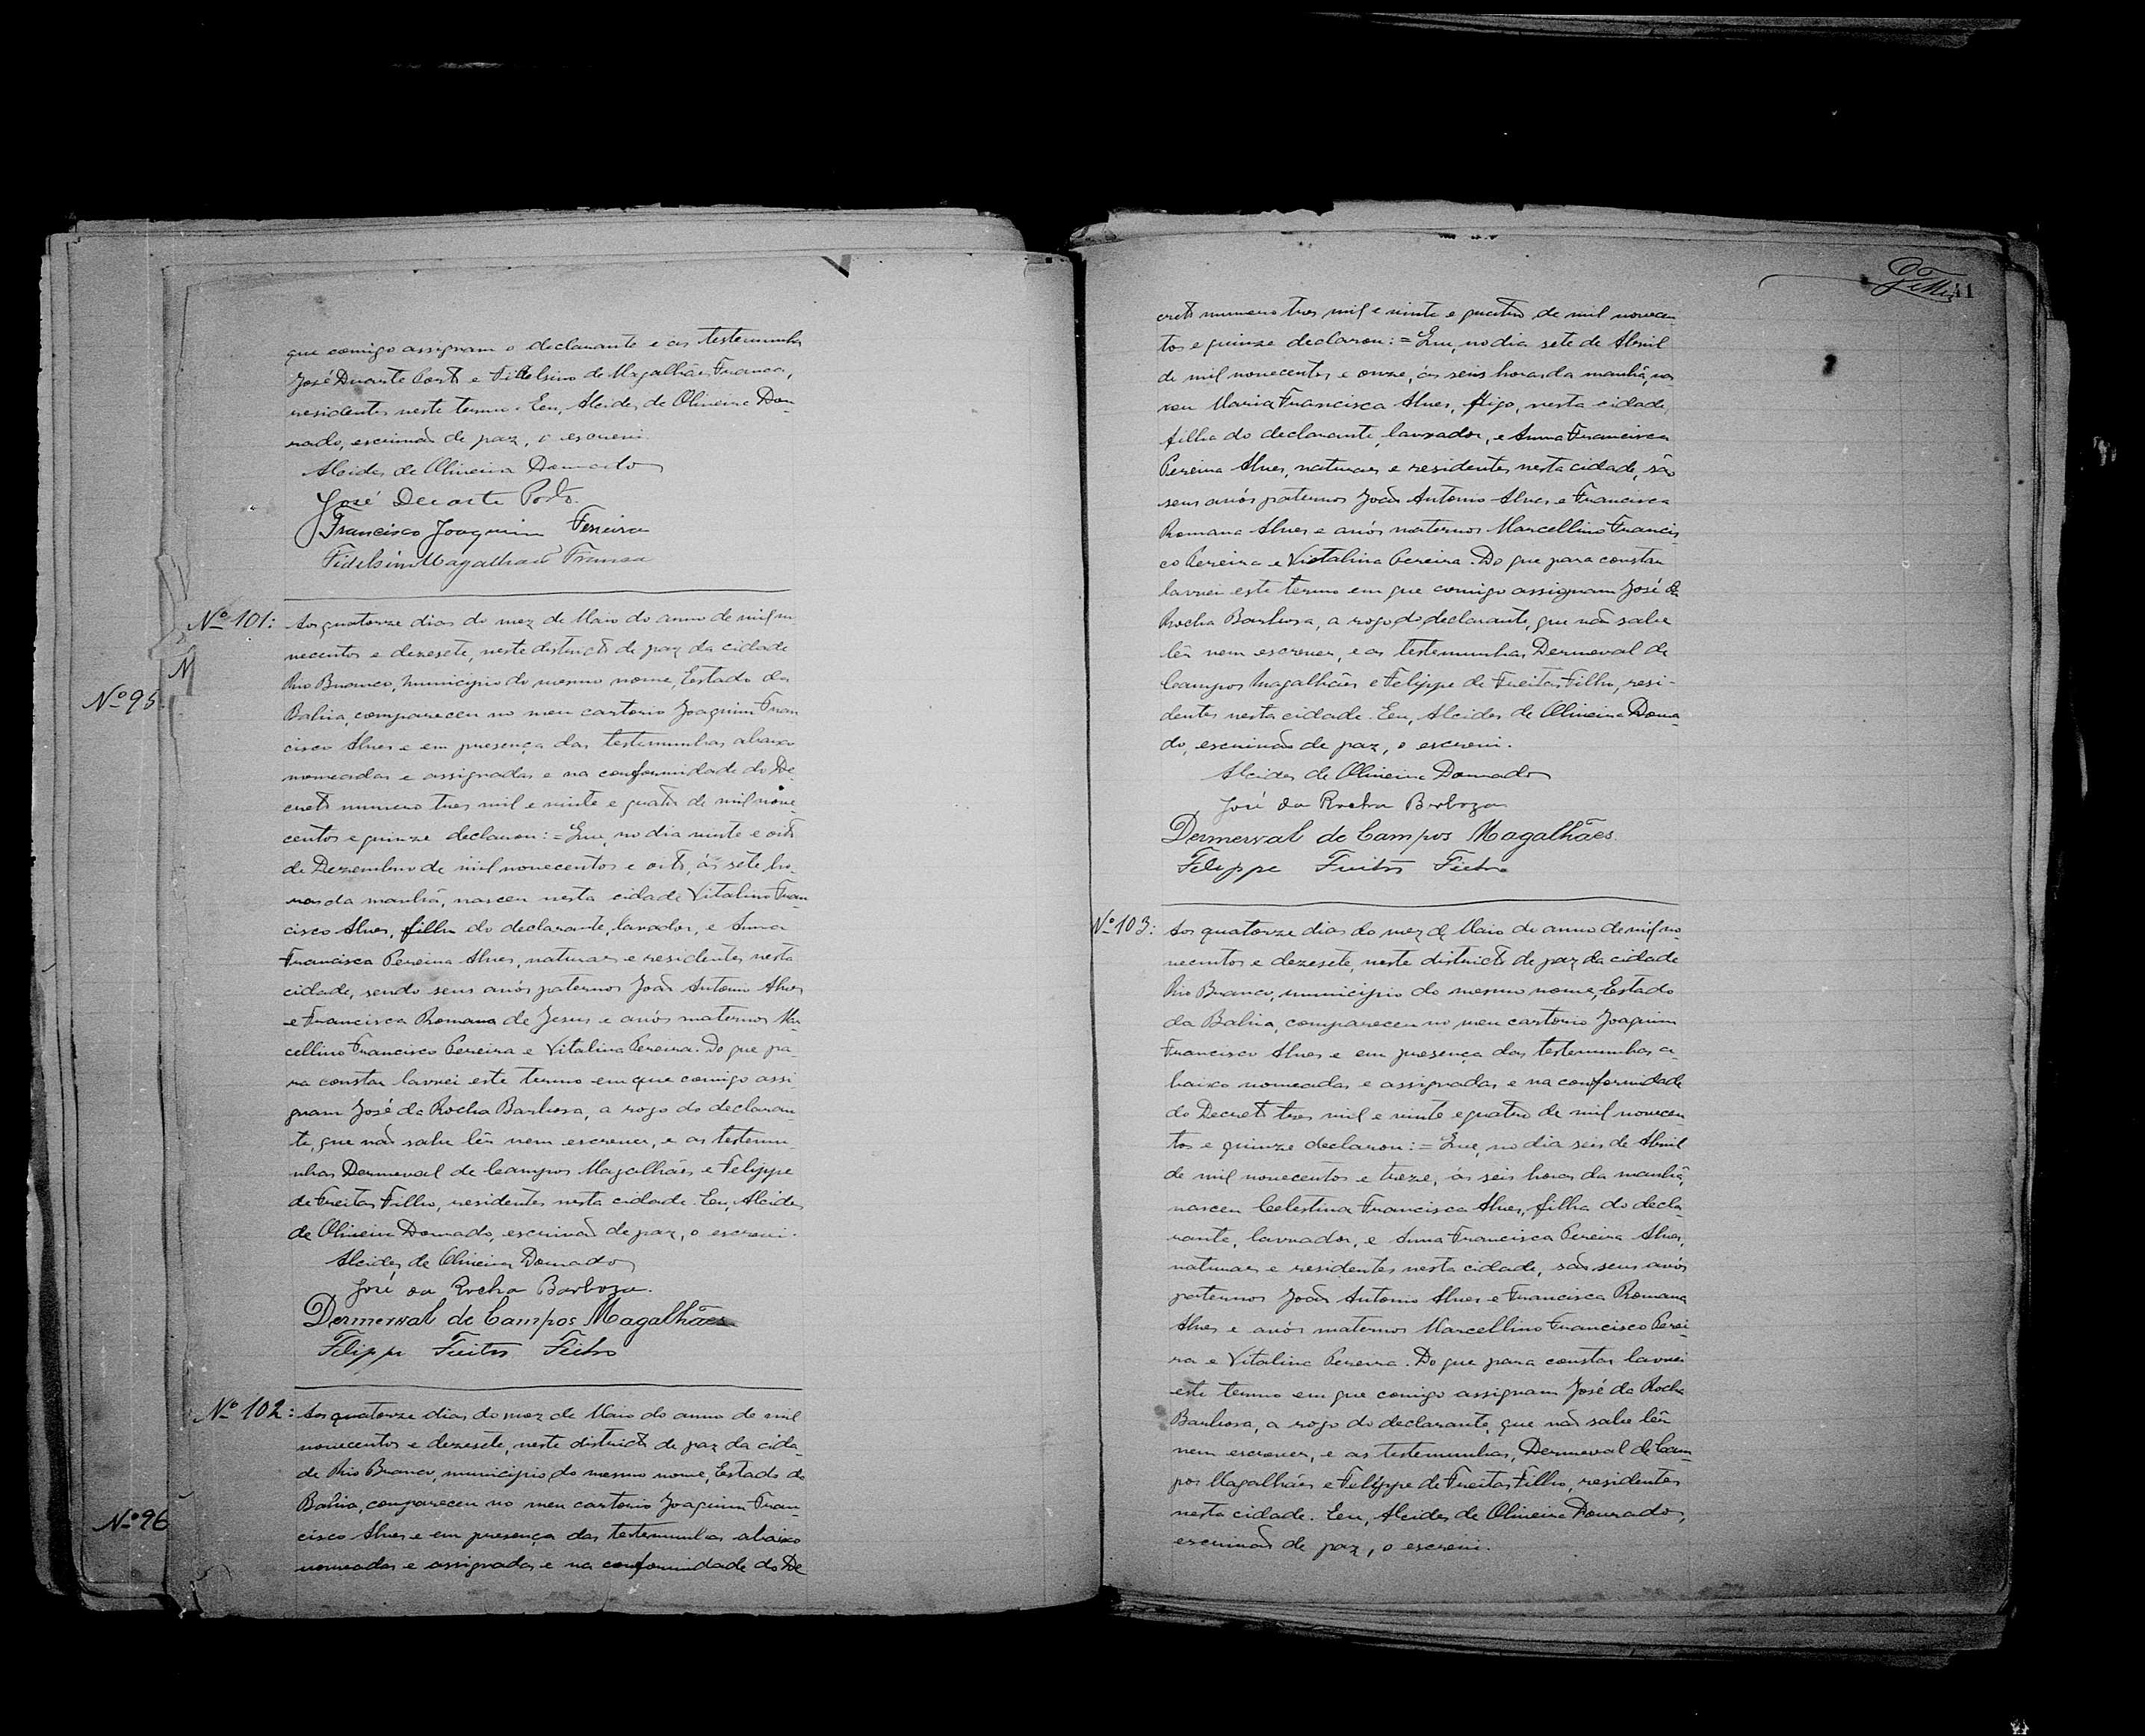 que comigo assignam o declarante e as testemunhas
José Duarte Porto e Fidelsino de Magalhães Franca,
residentes neste termo. Eu, Alcides de Oliveira Dou-
rado, escrivão de paz, o escrevi.
Alcides de Oliveira Dourado
José Duarte Porto.
Francisco Joaquim Ferreira
Fidelsino Magalhães Franca
Nº 101: Aos quatorze dias do mez de Maio do anno de mil no
vecentos e dezesete, neste districto de paz da cidade
Rio Branco, municipio do mesmo nome, Estado da
Bahia, compareceu no meu cartorio Joaquim Fran
cisco Alves e em presença das testemunhas abaixo
nomeadas e assignadas e na conformidade do De
creto numero tres mil e vinte e quatro de mil nove
centos e quinze declarou: = Que, no dia vinte e oito
de Dezembro de mil novecentos e oito, ás sete ho-
ras da manhã, nasceu nesta cidade Vitalino Fran-
cisco Alves, filho do declarante, lavrador, e Anna
Francisca Pereira Alves, naturaes e residentes nesta
cidade, sendo seus avós paternos João Antonio Alves
e Francisca Romana de Jesus e avós maternos Mar
cellino Francisco Pereira e Vitalina Pereira. Do que pa-
ra constar lavrei este termo em que comigo assi-
gnam José da Rocha Barbosa, a rogo do declaran-
te, que não sabe lêr nem escrever, e as testemu-
nhas Dermeval de Campos Magalhães e Felippe
de Freitas Filho, residentes nesta cidade. Eu, Alcides
de Oliveira Dourado, escrivão de paz, o escrevi.
Alcides de Oliveira Dourado
José da Rocha Barboza.
Dermerval de Campos Magalhães
Felippe Freitas Filho
Nº 102: Aos quatorze dias do mez de Maio do anno de mil
novecentos e dezesete, neste districto de paz da cida-
de Rio Branco, municipio do mesmo nome, Estado da
Bahia, compareceu no meu cartorio Joaquim Fran-
cisco Alves e em presença das testemunhas abaixo
nomeadas e assignadas e na conformidade do De
Nº 95.
N
Nº 96
41
creto numero tres mil e vinte e quatro de mil novecen
tos e quinze declarou: = Que, no dia sete de Abril
de mil novecentos e onze, ás seis horas da manhã, nas
ceu Maria Francisca Alves, digo, nesta cidade,
filha do declarante, lavrador, e Anna Francisca
Pereira Alves, naturaes e residentes nesta cidade, são
seus avós paternos João Antonio Alves e Francisca
Romana Alves e avós maternos Marcellino Francis
co Pereira e Vistalina Pereira. Do que para constar
lavrei este termo em que comigo assignam José da
Rocha Barbosa, a rogo do declarante, que não sabe
lêr nem escrever, e as testemunhas Dermeval de
Campos Magalhães e Felippe de Freitas Filho, resi-
dentes nesta cidade. Eu, Alcides de Oliveira Doura-
do, escrivão de paz, o escrevi.
Alcides de Oliveira Dourado
José da Rocha Barboza
Dermerval de Campos Magalhães.
Felippe Freitas Filho
Nº 103: Aos quatorze dias do mez de Maio do anno de mil no-
vecentos e dezesete, neste districto de paz da cidade
Rio Branco, municipio do mesmo nome, Estado
da Bahia, compareceu no meu cartorio Joaquim
Francisco Alves e em presença das testemunhas a-
baixo nomeadas e assignadas e na conformidade
do Decreto tres mil e vinte e quatro de mil novecen
tos e quinze declarou: = Que, no dia seis de Abril
de mil novecentos e treze, ás seis horas da manhã,
nasceu Celestina Francisca Alves, filha do decla-
rante, lavrador, e Anna Francisca Pereira Alves,
naturaes e residentes nesta cidade, são seus avós
paternos João Antonio Alves e Francisca Romana
Alves e avós maternos Marcellino Francisco Perei-
ra e Vitalina Pereira. Do que para constar lavrei
este termo em que comigo assignam José da Rocha
Barbosa, a rogo do declarante, que não sabe lêr
nem escrever, e as testemunhas, Dermeval de Cam
pos Magalhães e Felippe de Freitas Filho, residentes
nesta cidade. Eu, Alcides de Oliveira Dourado,
escrivão de paz, o escrevi.